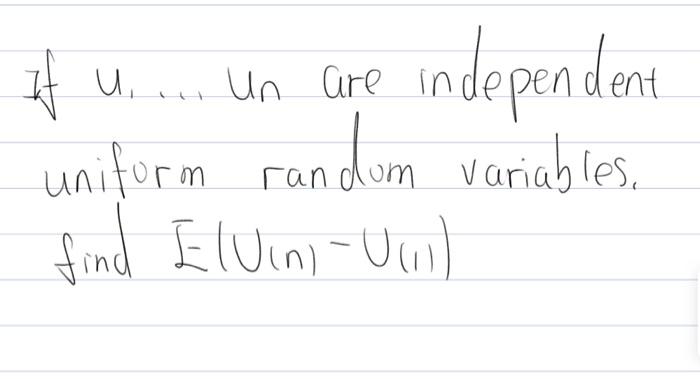 If u, .... Un are independent
uniform random variables.
find E(U(n) - U(1))